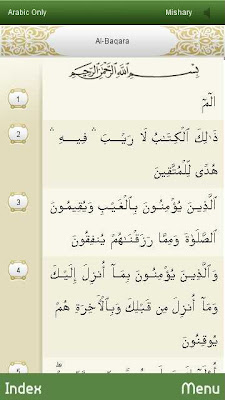 Arabic Only Mishary
Al-Baqara
بِسْمِ ٱللَّهِ ٱلرَّحْمَٰنِ ٱلرَّحِيمِ
1 الٓمٓ
2 ذَٰلِكَ ٱلْكِتَٰبُ لَا رَيْبَ ۛ فِيهِ ۛ
هُدًى لِّلْمُتَّقِينَ
3 ٱلَّذِينَ يُؤْمِنُونَ بِٱلْغَيْبِ وَيُقِيمُونَ
ٱلصَّلَوٰةَ وَمِمَّا رَزَقْنَٰهُمْ يُنفِقُونَ
4 وَٱلَّذِينَ يُؤْمِنُونَ بِمَآ أُنزِلَ إِلَيْكَ
وَمَآ أُنزِلَ مِن قَبْلِكَ وَبِٱلْءَاخِرَةِ هُمْ
يُوقِنُونَ
5
Index Menu